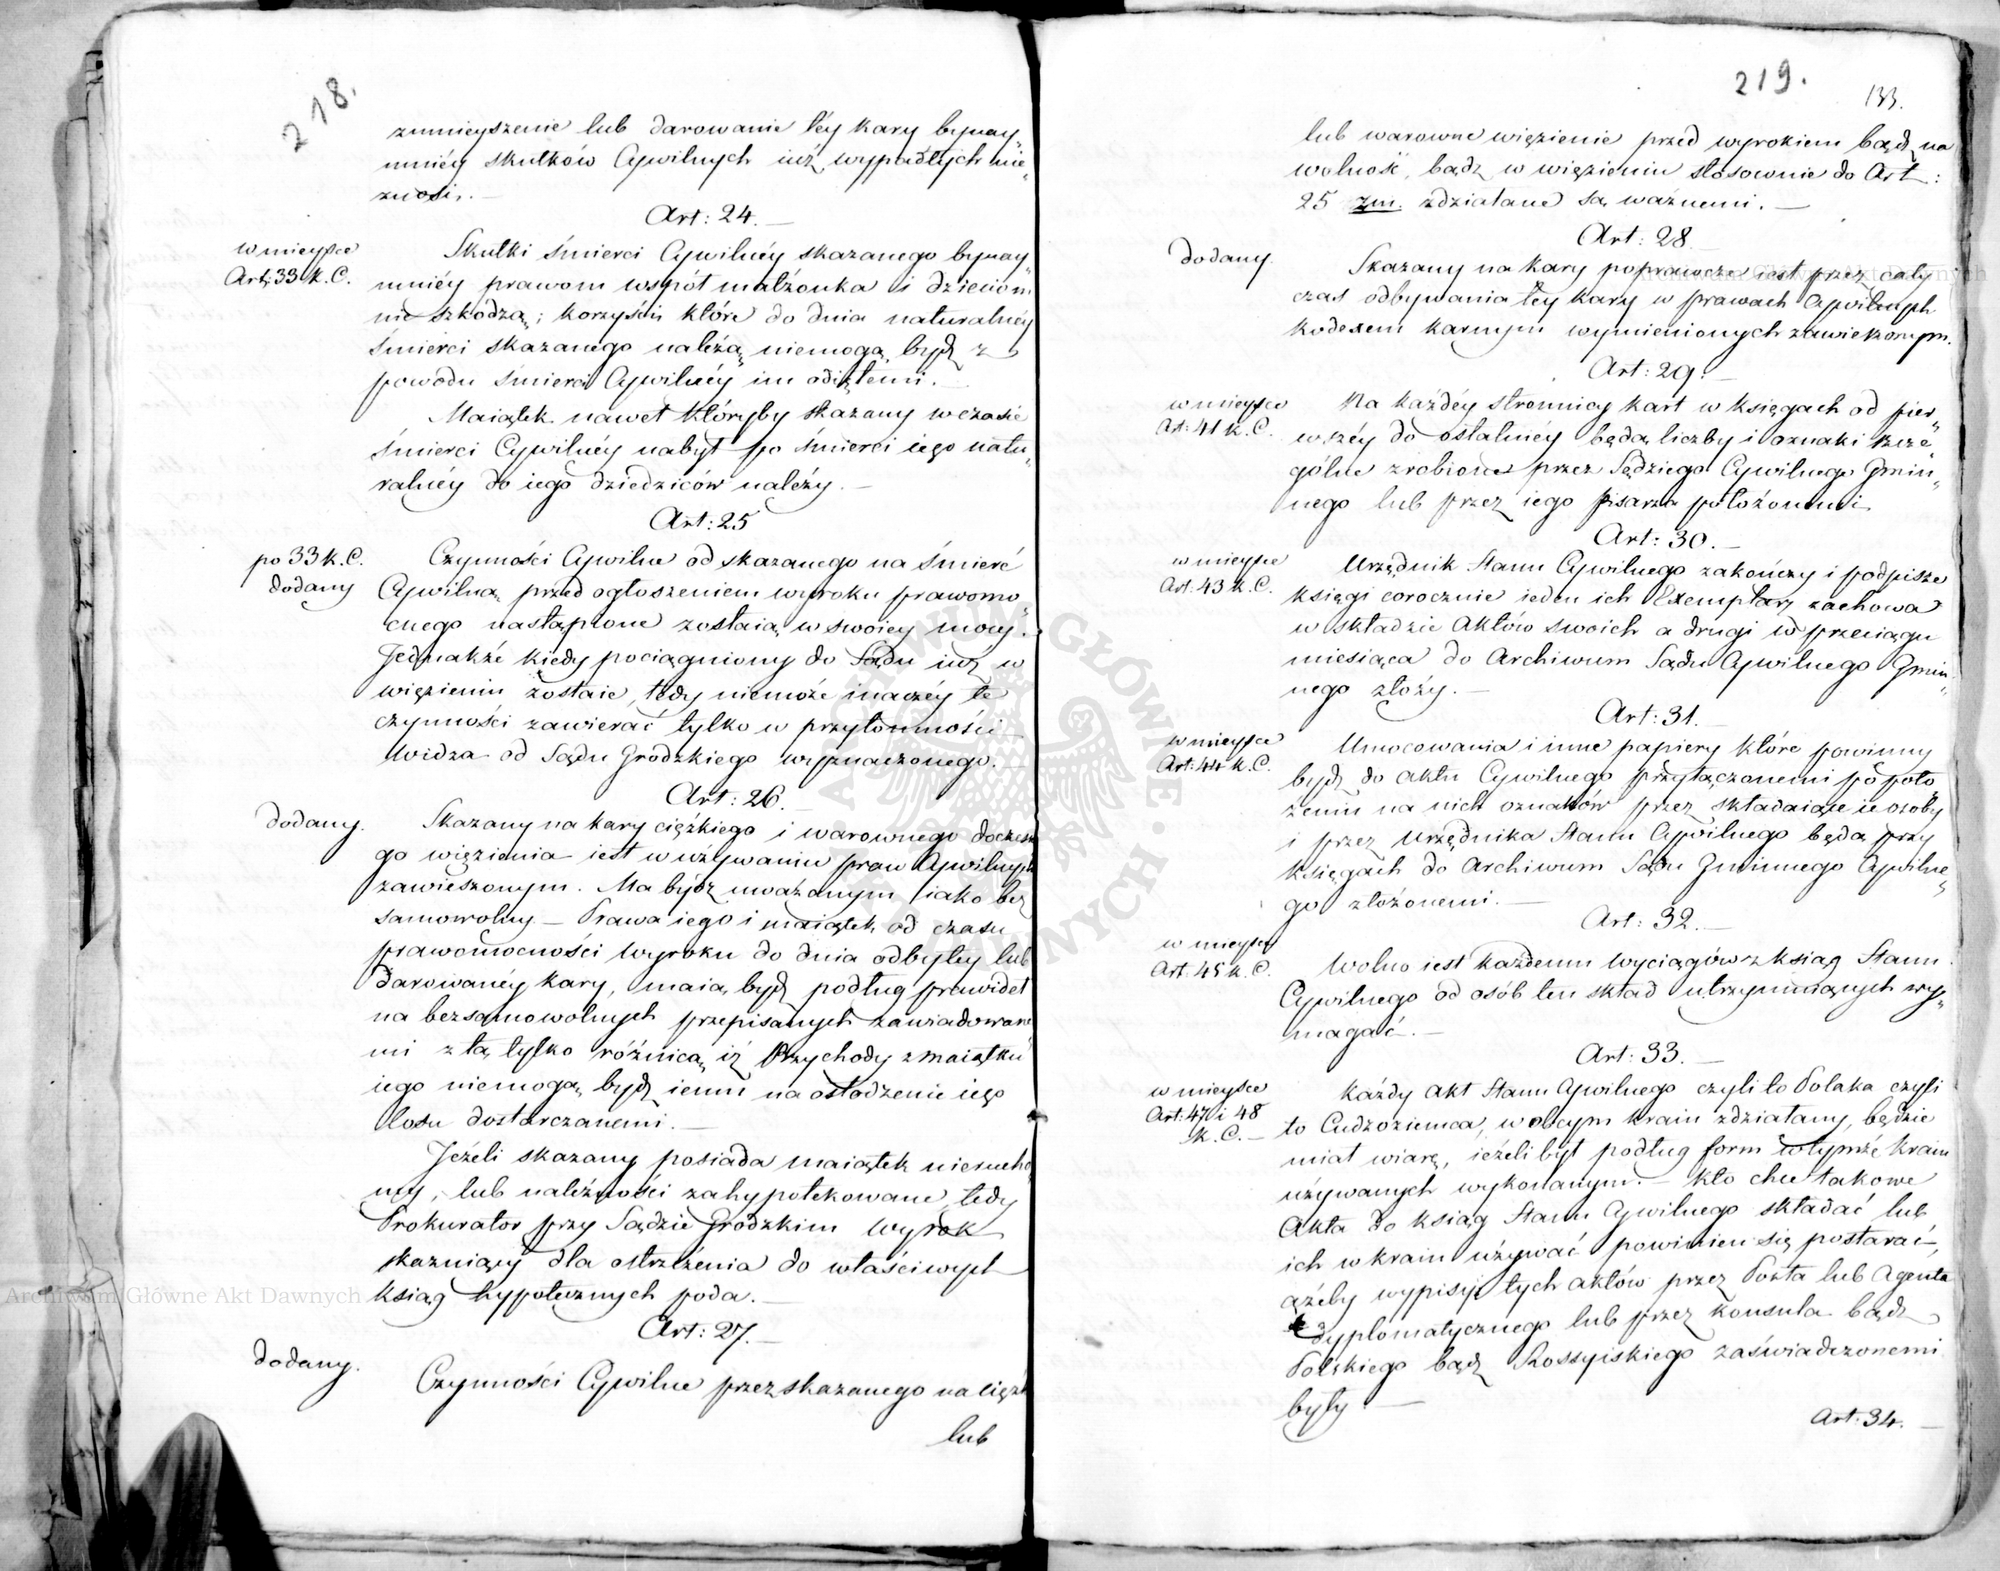 218.
zmnieyszenie lub darowanie téy kary bynay„
mniéy skutków Cywilnych iuż wypadłych nie„
znosi. —
Art: 24. —
w mieysce
Art: 33 K. C.
Skutki śmierci Cywilnéy skazanego bynay„
mniéy prawom współmałżonka i dzieciom
nie szkodzą; korzyści które do dnia naturalnéy
śmierci skazanego należą, niemogą bydź z
powodu śmierci Cywilnéy im odiętemi. —
Maiątek nawet któryby skazany w czasie
śmierci Cywilnéy nabył po śmierci iego natu„
ralnéy do iego dziedziców należy. —
Art: 25
po 33 K. C.
dodany
Czynności Cywilne od skazanego na śmierć
Cywilną przed ogłoszeniem wyroku prawomo„
cnego nastąpione zostaią w swoiey mocy.
Jednakże kiedy pociągniony do Sądu iuż w
więzieniu zostaie, tedy niemoże inaczéy te
czynności zawierać tylko w przytomności
Widza od Sądu Grodzkiego wyznaczonego. —
Art: 26. —
dodany.
Skazany na kary ciężkiego i warownego doczesne
go więzienia iest w używaniu praw Cywilnych
zawieszonym. Ma bydź uważanym iako bez
samowolny — Prawa iego i maiątek od czasu
prawomocności wyroku do dnia odbytey lub
darowanéy kary, maią bydź podług prawideł
na bezsamowolnych przepisanych zawiadowane
mi z tą tylko różnicą, iż Przychody z maiątku
iego niemogą bydź iemu na osłodzenie iego
losu dostarczanemi. —
Jeżeli skazany posiada maiątek nierucho„
my, lub należności zahypotekowane, tedy
Prokurator przy Sądzie Grodzkim wyrok
skazuiący dla ostrzeżenia do właściwych
ksiąg hypotecznych poda. —
Art: 27. —
dodany.
Czynności Cywilne przez skazanego na ciężk
lub
219.
133.
lub warowne więzienie przed wyrokiem bądź na
wolność, bądź w więzieniu stosownie do Art:
25 zm. zdziałane są ważnemi. —
Art: 28 —
dodany.
Skazany na kary poprawcze iest przez cały
czas odbywania téy kary w prawach Cywilnych
kodexem karnym wymienionych zawieszonym.
Art: 29. —
w mieysce
Art: 41 K. C.
Na każdéy stronnicy kart w księgach od pier„
wszéy do ostatniéy będą liczby i oznaki szcze„
gólne zrobione przez Sędziego Cywilnego Gmin„
nego lub przez iego pisarza położonemi
Art: 30. —
w mieysce
Art: 43 K. C.
Urzędnik Stanu Cywilnego zakończy i podpisze
księgi corocznie ieden ich Exemplarz zachowa
w składzie Aktów swoich a drugi w przeciągu
miesiąca do Archiwum Sądu Cywilnego Gmin„
nego złoży. —
Art: 31. —
w mieysce
Art: 44 K. C.
Umocowania i inne papiery które powinny
bydź do aktu Cywilnego przyłączonemi po poło„
żeniu na nich oznaków przez składaiące ie osoby
i przez Urzędnika Stanu Cywilnego będą przy
księgach do Archiwum Sądu Gminnego Cywilne„
go złożonemi. —
Art: 32. —
w mieysce
Art: 45 K. C.
Wolno iest każdemu wyciągów z ksiąg Stanu
Cywilnego od osób ten skład utrzymuiących wy„
magać. —
Art: 33. —
w mieysce
Art: 47 i 48
K. C. —
Każdy akt Stanu Cywilnego czyli to Polaka czyli
to Cudzoziemca, w obcym kraiu zdziałany, będzie
miał wiarę, ieżeli był podług form w tymże kraiu
używanych wykonanym. — Kto chce takowe
Akta do ksiąg Stanu Cywilnego składać lub
ich w kraiu używać powinien się postarać,
ażeby wypisy tych aktów przez Posła lub Agenta
dyplomatycznego lub przez Konsula bądź
Polskiego bądź Rossyiskiego zaświadczonemi
były. —
Art: 34. —
Archiwum Główne Akt Dawnych
Archiwum Główne Akt Dawnych
ARCHIWUM GŁÓWNE AKT DAWNYCH